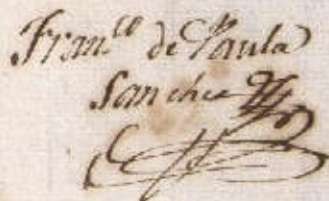 Fran.co de Paula
Sanchez